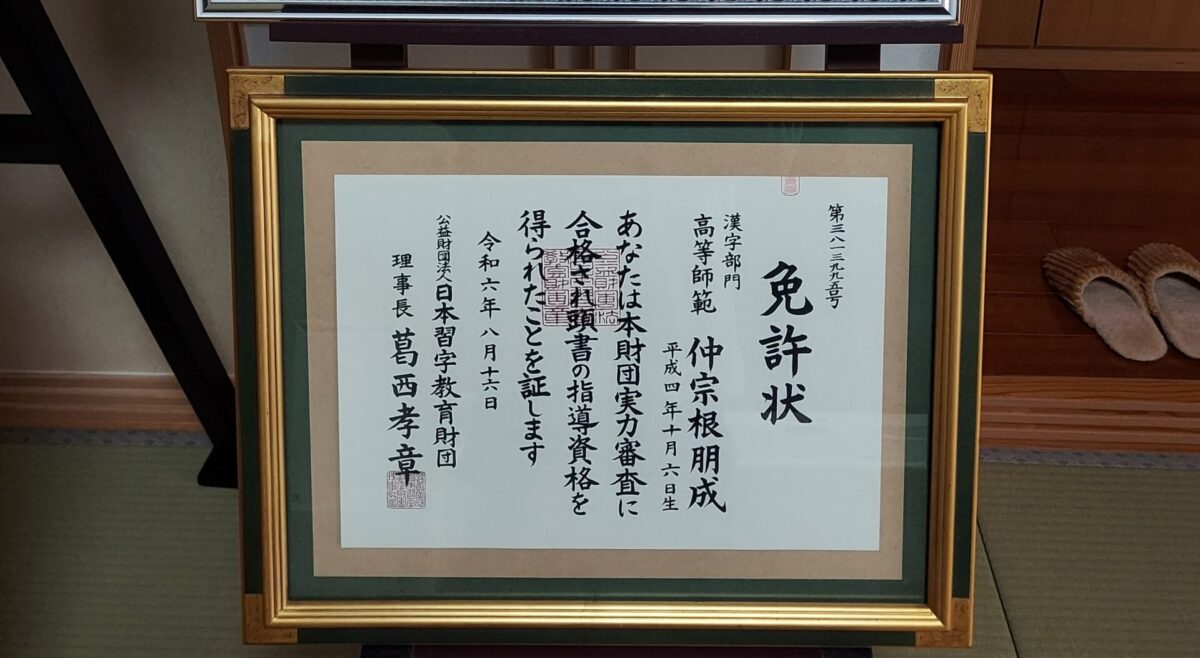 第三八一三九九五号
免許状
漢字部門
高等師範 仲宗根朋成
平成四年十月六日生
あなたは本財団実力審査に
合格され頭書の指導資格を
得られたことを証します
令和六年八月十六日
公益財団法人日本習字教育財団
理事長 葛西孝章